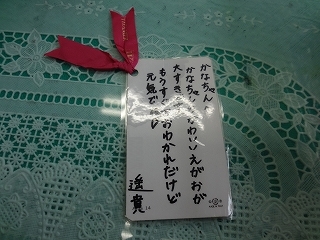 かなちゃん
かなちゃんのかわいいえがおが
大すき
もうすぐおわかれだけど
元気で
遥貴